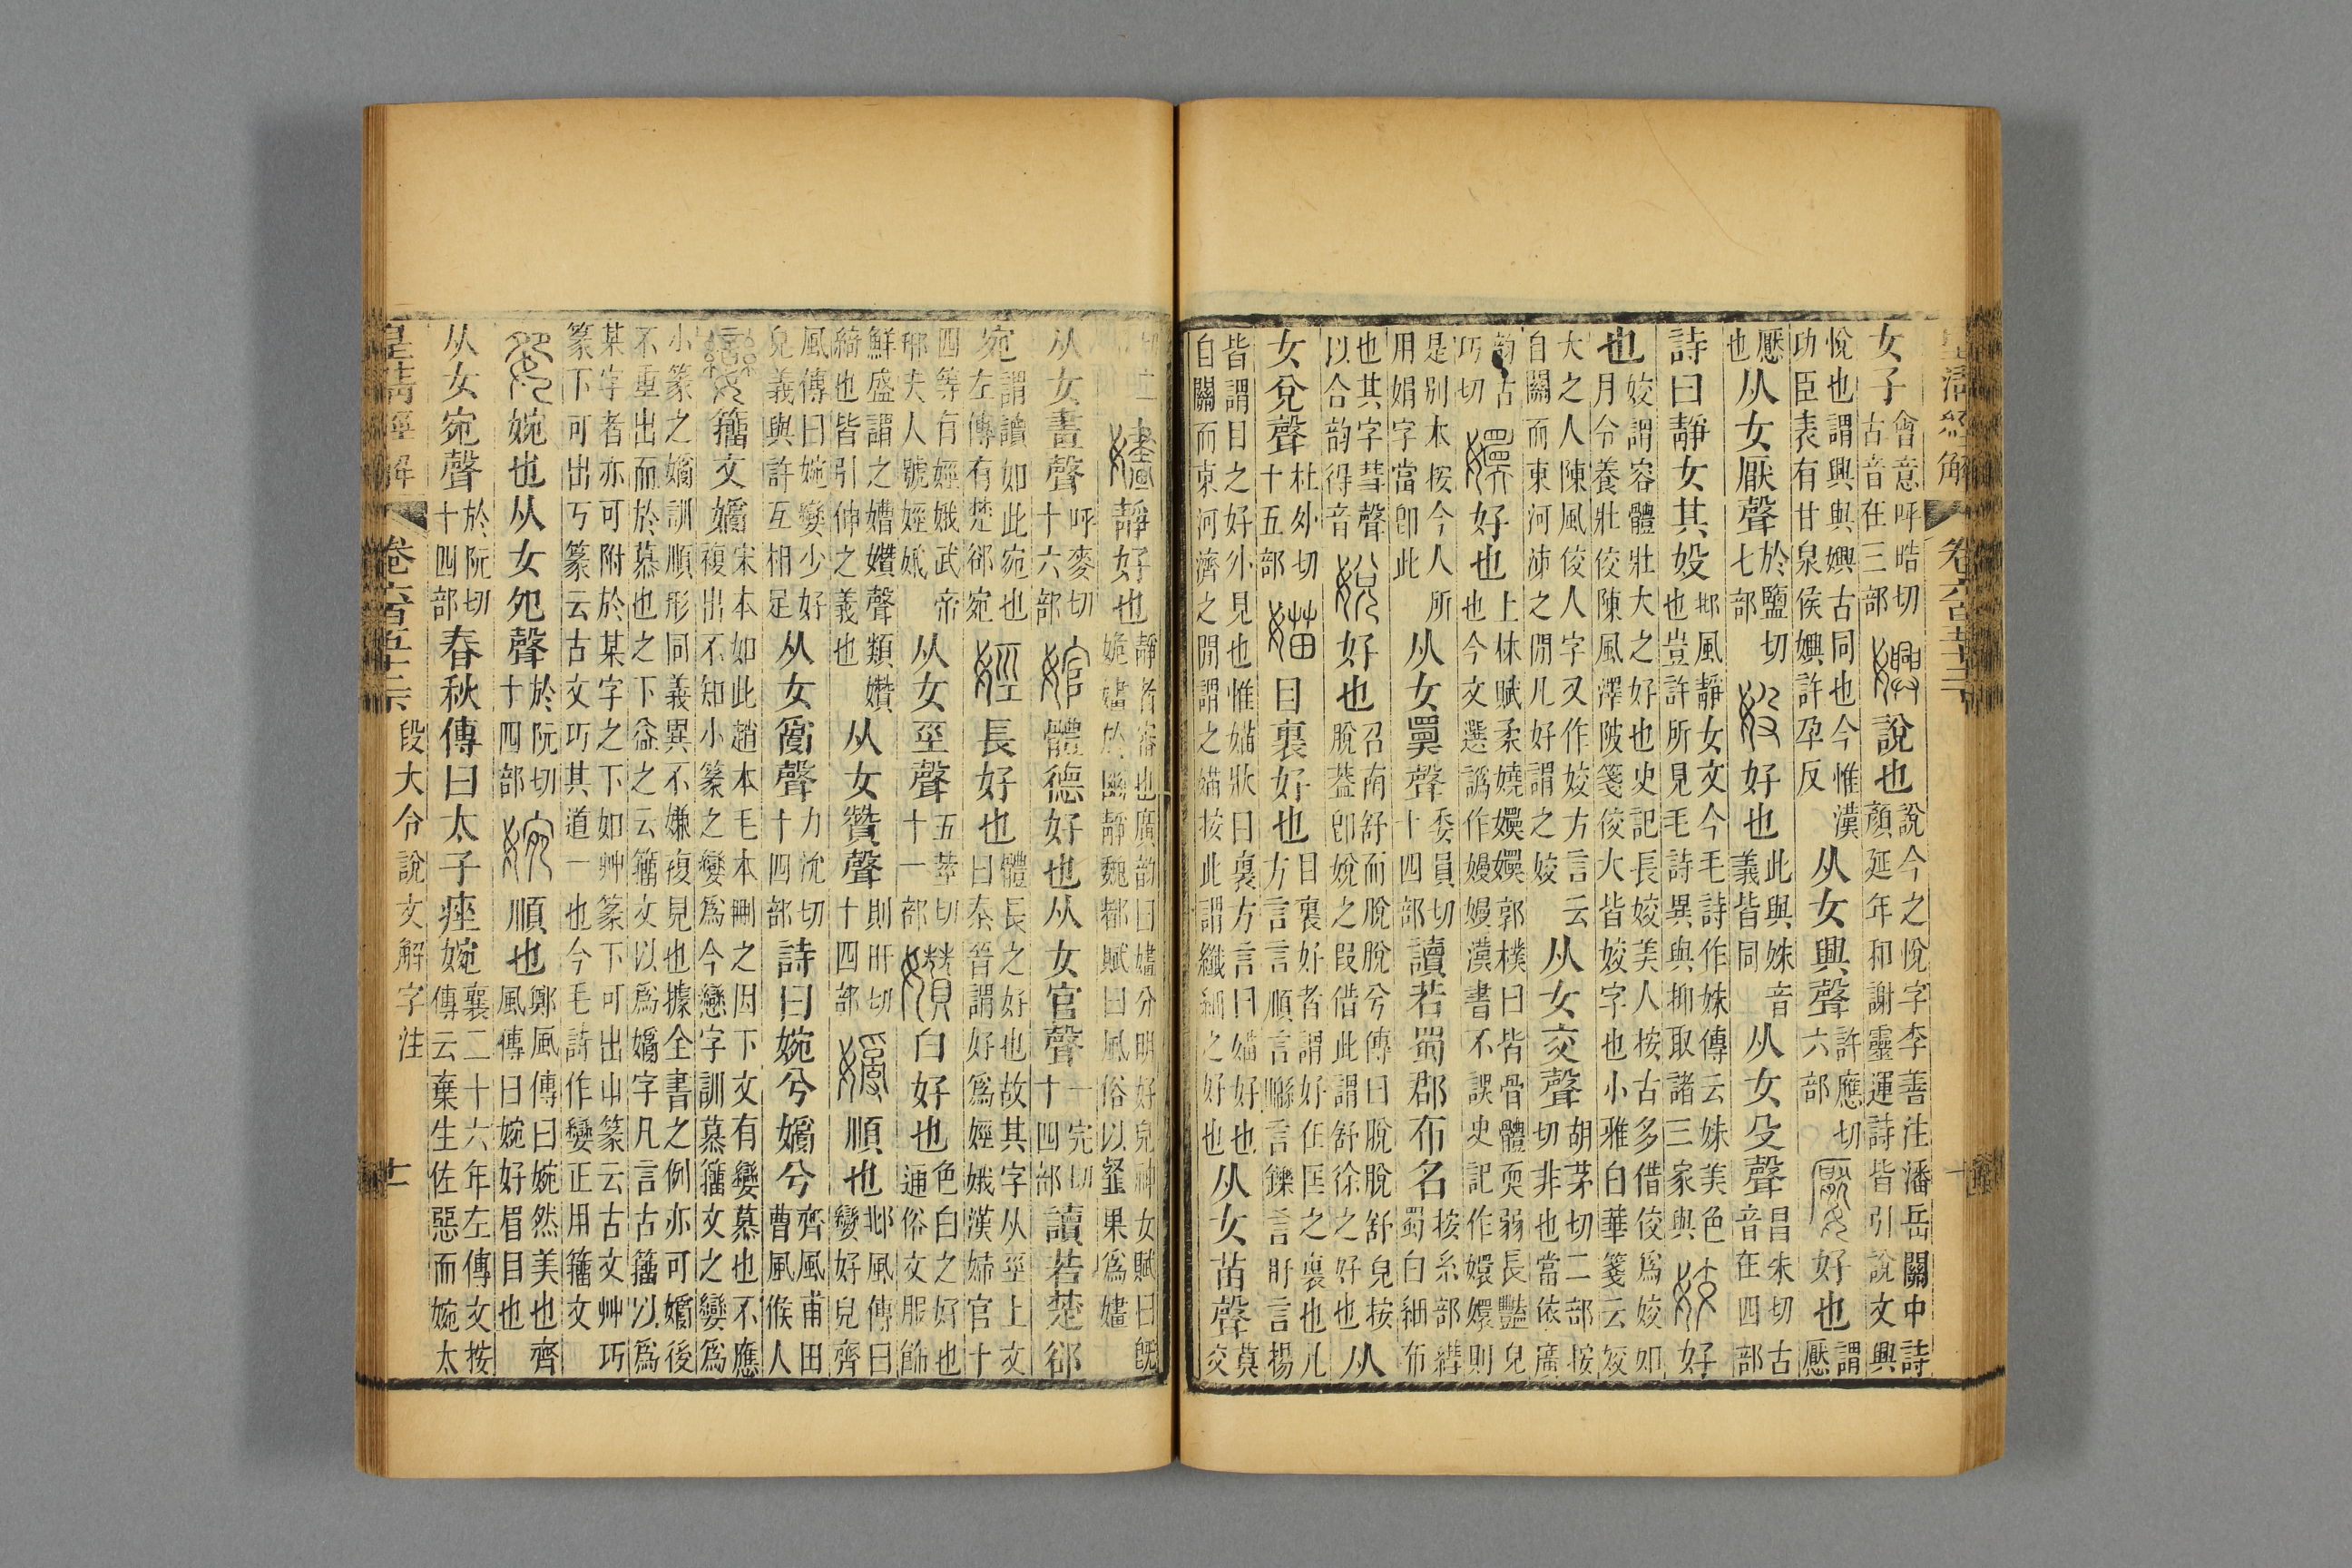 女子會意呼晧切古音在三部嬹說也說今之悅字李善注潘岳關中詩顏延年和謝靈運詩皆引說文興
悅也謂興與嬹古同也今惟漢功臣表有甘泉侯嬹許孕反从女興聲許應切六部嬮好也謂嬮
也从女厭聲於鹽切七部㛔好也此與姝音義皆同从女殳聲昌朱切古音在四部
詩曰靜女其㛔邶風靜女文今毛詩作姝傳云姝美色也豈許所見毛詩異與抑取諸三家與姣好
也姣謂容體壯大之好也史記長姣美人按古多借佼爲姣如月令養壯佼陳風澤陂箋佼大皆姣字也小雅白華箋云姣
大之人陳風佼人字又作姣方言云自關而東河泲之閒凡好謂之姣从女交聲胡茅切二部按切非也當依廣
韵古巧切嬽好也上林賦柔嬈嬽嬽郭樸曰皆骨體耎弱長豔皃也今文選譌作嫚嫚漢書不誤史記作嬛嬛則
是别本按今人所用娟字當卽此从女䙴聲委員切十四部讀若蜀郡布名按糸部𦃘蜀白細布
也其字彗聲以合韵得音娧好也召南舒而脫脫兮傳曰脫脫舒皃按脫葢卽娧之叚借此謂舒徐之好也从
女兌聲杜外切十五部媌目裏好也目裏好者謂好在匡之裏也凡方言言順言㬎言鑠言盱言揚
皆謂目之好外見也惟媌狀曰裏方言曰媌好也自關而東河濟之閒謂之媌按此謂纖細之好也从女苗聲莫交
切二部嫿靜好也靜者審也廣韵曰嫿分明好皃神女賦曰旣姽嫿於幽靜魏都賦曰風俗以韰果爲嫿
从女畫聲呼麥切十六部婠體德好也从女官聲一完切十四部讀若楚郤
宛謂讀如此宛也左傳有楚郤宛娙長好也體長之好也故其字从巠上文曰秦晉謂好爲娙娥漢婦官十
四等有娙娥武帝邢夫人號娙娥从女巠聲五莖切十一部䊳白好也色白之好也通俗文服飾
鮮盛謂之䙹䙹聲類綺也皆引伸之義也从女贊聲則旰切十四部嫡順也邶風傳曰孌好皃齊
風傳曰婉孌少好皃義與許互相足从女𤔔聲力沇切十四部詩曰婉兮𡡗兮齊風甫田曹風候人
籒文𡡗宋本如此趙本毛本刪之因下文有孌慕也不應複出不知小篆之孌爲今戀字訓慕籒文之孌爲
小篆之𡡗訓順形同義異不嫌複見也據全書之例亦可𡡗後不重出而於慕也之下益之云籒文以爲𡡗字凡言古籒以爲
某字者亦可附於某字之下如艸篆下可出屮篆云古文艸巧篆下可出丂篆云古文巧其道一也今毛詩作孌正用籒文
婉也从女夗聲於阮切十四部婉順也鄭風傳曰婉然美也齊風傳曰婉好眉目也
从女宛聲於阮切十四部春秋傳曰太子痤婉襄二十六年左傳文按傳云棄生佐惡而婉太
皇清經解 卷六百五十二 段大令說文解字注 十一